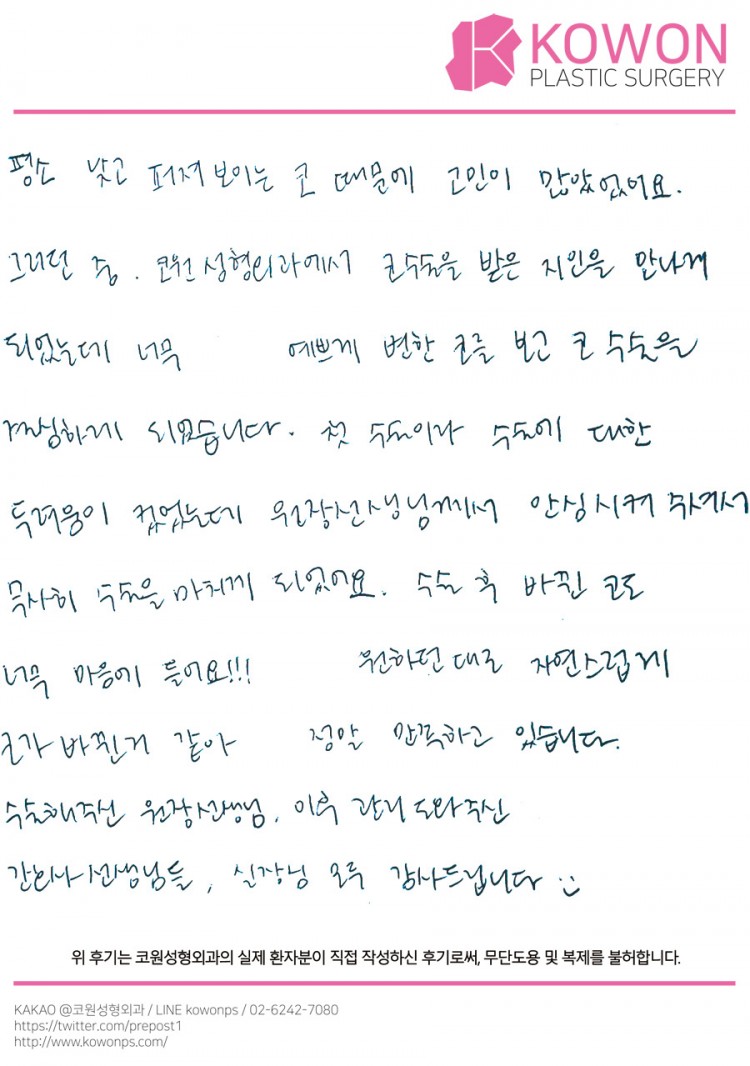 KOWON
PLASTIC SURGERY
평소 낮고 퍼져보이는 코 때문에 고민이 많았었어요.
그러던 중, 코원성형외과에서 코수술을 받은 지인을 만나게
되었는데 너무 예쁘게 변한 코를 보고 코 수술을
결심하게 되었습니다. 첫 수술이라 수술에 대한
두려움이 컸었는데 원장선생님께서 안심시켜 주셔서
무사히 수술을 마치게 되었어요. 수술 후 바뀐 코도
너무 마음에 들어요!!! 원하던대로 자연스럽게
코가 바뀐거 같아 정말 만족하고 있습니다.
수술해주신 원장선생님, 이후 관리 도와주신
간호사선생님들, 실장님 모두 감사드립니다
위 후기는 코원성형외과의 실제 환자분이 직접 작성하신 후기로써, 무단도용 및 복제를 불허합니다.
KAKAO @코원성형외과 / LINE kowonps / 02-6242-7080
https://twitter.com/prepost1
http://www.kowonps.com/